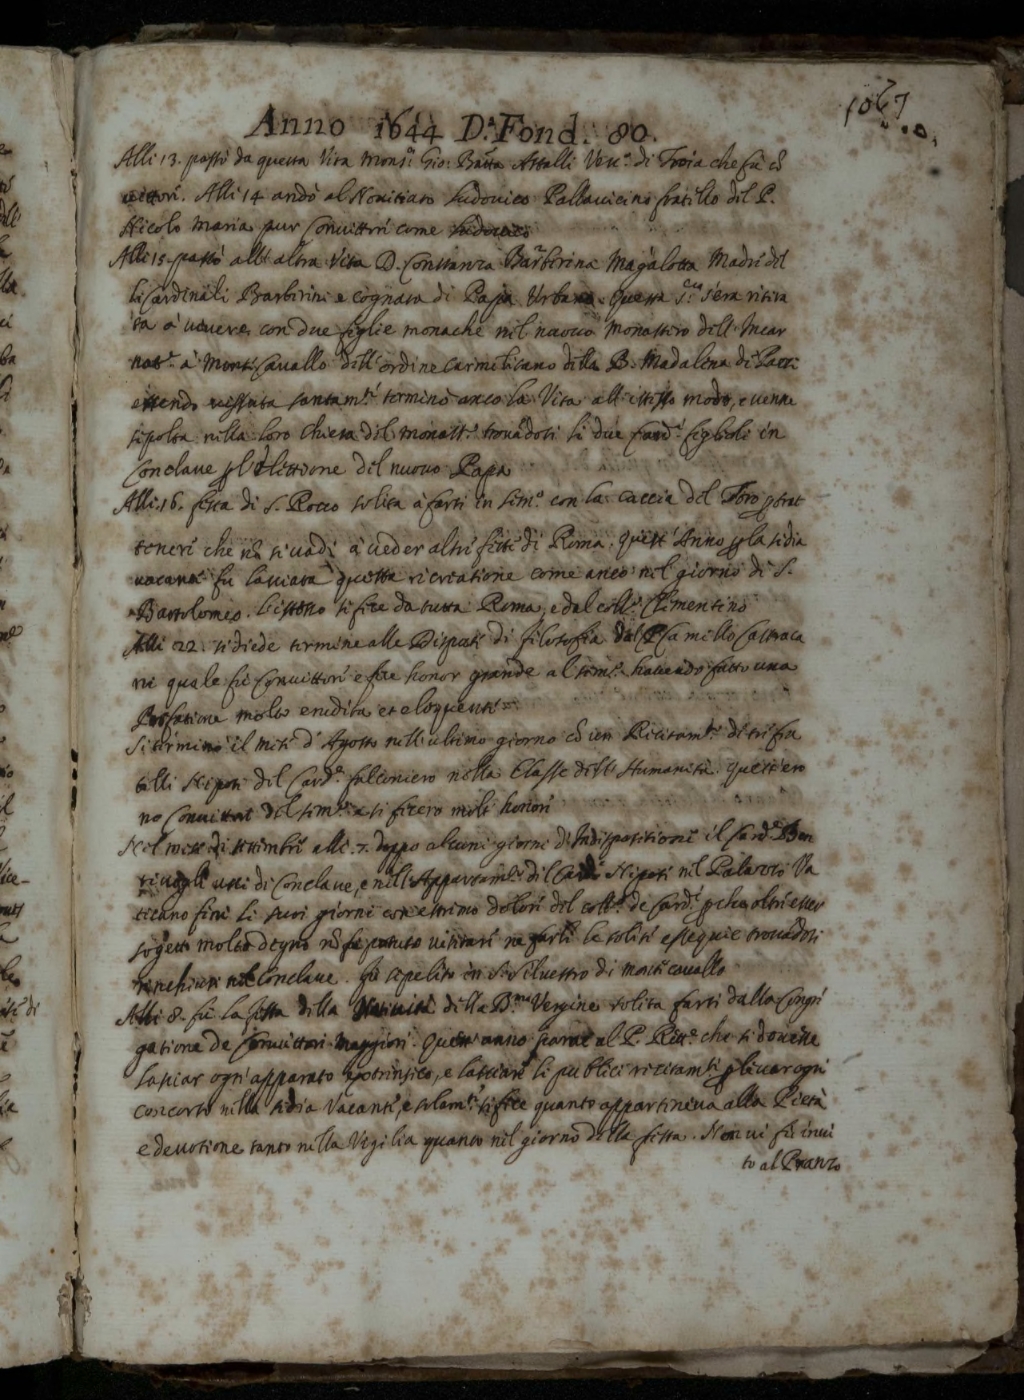 1067
Anno 1644 D.ª Fond. 80.
Alli 13. passò da questa Vita Mons.r Gio: Batta Astalli Vesc.º di Troia che fù cō
vittori. Alli 14 andò al Novitiato Ludovico Pallavicino fratello del P.
Nicolo Maria pur Convittori come
Alli 15 passò all' altra Vita D. Constanza Barberina Magalotta Madre del
li Cardinali Barberini e cognata di Papa Urbano. Questa s'era ritira
ta à vivere con due figlie monache nel nuovo Monastero dell' Incar
nat.e à Monte Cavallo dell' ordine carmelitano della B. Madalena di Pazzi
essendo vissuta santam.te terminò anco la Vita all' istesso modo, e venne
sepolta nella loro Chiesa del monast.º trovādosi li due Card.i figlioli in
Conclave p l'elettione del nuovo Papa
Alli 16. festa di S. Rocco solita à farsi in Sem.º con la caccia del Toro p trat
tenere che nō si vadi à veder altre feste di Roma. Quest' Anno p la sedia
vacante fu lasciata questa ricreatione come anco nel giorno di S.
Bartolomeo. L'istesso si fece da tutta Roma, e dal coll.º Clementino
Alli 22. si diede termine alle Dispute di filosofia dal P. Camillo Castraca
ni quale fù Convittore e fece honor grande al Sem.º havendo fatto una
Prefatione molto erudita et eloquente
Si terminò il mese d'Agosto nell' ultimo giorno cō un Recitam.to di tre fra
telli Nipoti del Card.e Falconiero nella Classe dell' Humanità. Questi ero
no Convittori del Sem.º e si fecero molto honore
Nel mese di Settembre alli 7. doppo alcuni giorni d'Indispositione il Card.e Ben
tivogli uscì di Conclave, e nell' Appartam.to del Card. Nipote nel Palazzo Va
ticano finì li suoi giorni con estremo dolore del coll.º de Card.i p che oltre esser
sogetto molto degno nō fù potuto visitare ne farli le solite essequie trovādosi
rinchiusi nel Conclave. fù sepelito in S. Silvestro di monte cavallo
Alli 8. fù la festa della Natività della B.ma Vergine solita farsi dalla Congre
gatione de Convittori Maggiori. Quest' anno parve al P. Rett.e che si dovesse
lasciar ogni apparato estrinseco, e lasciare li publici recitam.ti p levar ogni
concorso nella sedia Vacante, e solam.te si fece quanto apparteneva alla Pietà
e devotione tanto nella Vigilia quanto nel giorno della festa. Non vi fù invi
to al Pranzo